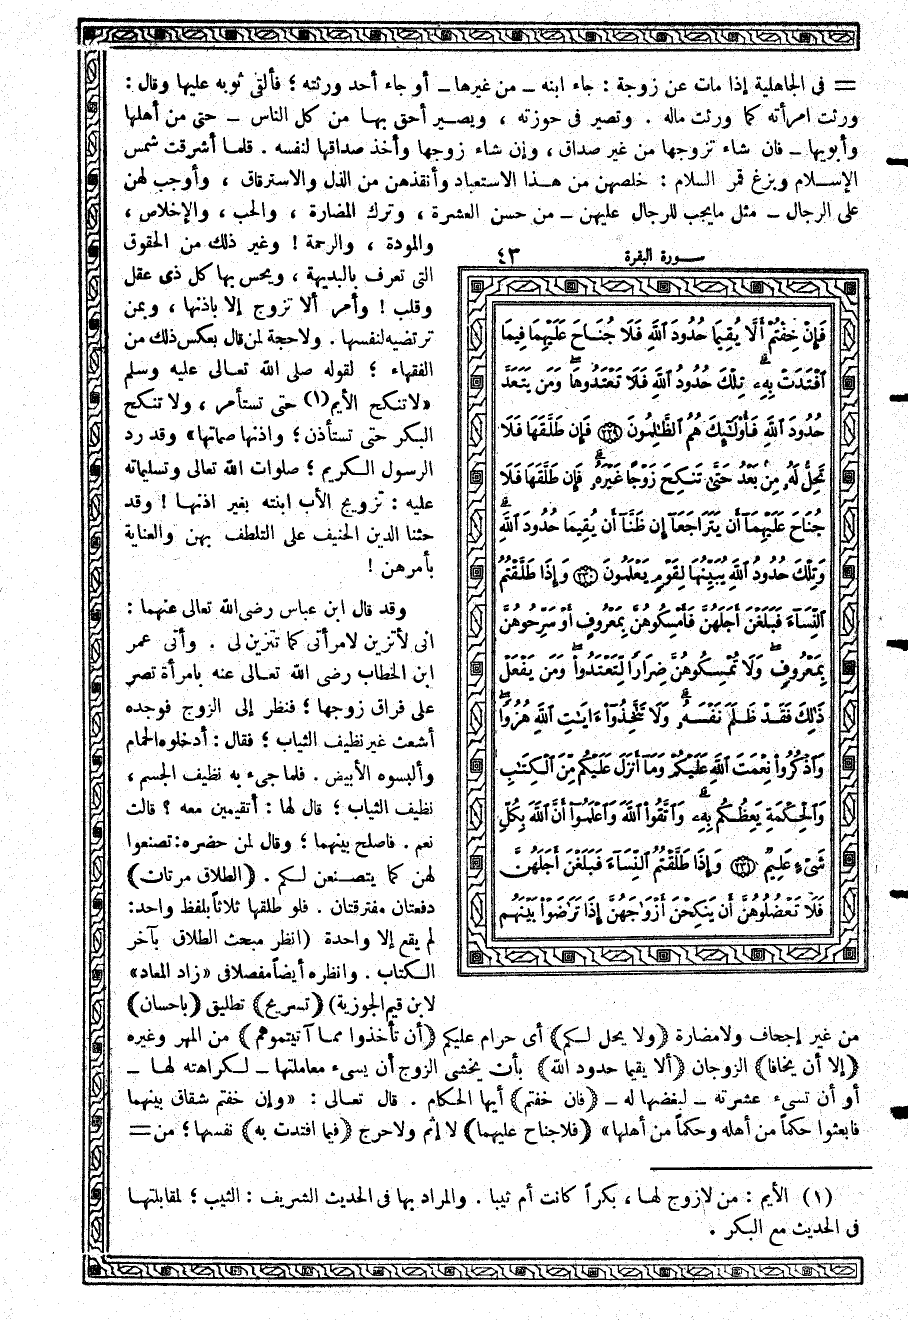 = فى الجاهلية إذا مات عن زوجة : جاء ابنه ــ من غيرها ــ أو جاء أحد ورثته ؛ فألقى ثوبه عليها وقال :
ورثت امرأته كما ورثت ماله . وتصير فى حوزته ، ويصير أحق بها من كل الناس ــ حتى من أهلها
وأبويها ــ فان شاء تزوجها من غير صداق ، وإن شاء زوجها وأخذ صداقها لنفسه . فلما أشرقت شمس
الإسلام وبزغ قمر السلام : خلصهن من هذا الاستعباد وأنقذهن من الذل والاسترقاق ، وأوجب لهن
على الرجال ــ مثل مايجب للرجال عليهن ــ من حسن العشرة ، وترك المضارة ، والحب ، والإخلاص ،
والمودة ، والرحمة ! وغير ذلك من الحقوق
التى تعرف بالبديهة ، ويحس بها كل ذى عقل
وقلب ! وأمر ألا تزوج إلا باذنها ، وبمن
ترتضيه لنفسها . ولا حجة لمن قال بعكس ذلك من
الفقهاء ؛ لقوله صلى الله تعالى عليه وسلم
«لا تنكح الأيم(١) حتى تستأمر ، ولا تنكح
البكر حتى تستأذن ؛ واذنها صماتها» وقد رد
الرسول الكريم ؛ صلوات الله تعالى وتسليماته
عليه : تزويج الأب ابنته بغير اذنها ! وقد
حثنا الدين الحنيف على التلطف بهن والعناية
بأمرهن !
وقد قال ابن عباس رضى الله تعالى عنهما :
انى لأتزين لامرأتى كما تتزين لى . وأتى عمر
ابن الخطاب رضى الله تعالى عنه بامرأة تصر
على فراق زوجها ؛ فنظر إلى الزوج فوجده
أشعث غير نظيف الثياب ؛ فقال : أدخلوه الحمام
وألبسوه الأبيض . فلما جىء به نظيف الجسم ،
نظيف الثياب ؛ قال لها : أتقيمين معه ؟ قالت
نعم . فاصلح بينهما ؛ وقال لمن حضره : تصنعوا
لهن كما يتصنعن لكم . (الطلاق مرتان)
دفعتان مفترقتان . فلو طلقها ثلاثاً بلفظ واحد :
لم يقع إلا واحدة (انظر مبحث الطلاق بآخر
الكتاب . وانظره أيضاً مفصلا فى «زاد المعاد»
لابن قيم الجوزية) (تسريح) تطليق (باحسان)
سورة البقرة ٤٣
فَإِنْ خِفْتُمْ أَلَّا يُقِيمَا حُدُودَ ٱللَّهِ فَلَا جُنَاحَ عَلَيْهِمَا فِيمَا
ٱفْتَدَتْ بِهِۦ تِلْكَ حُدُودُ ٱللَّهِ فَلَا تَعْتَدُوهَا وَمَن يَتَعَدَّ
حُدُودَ ٱللَّهِ فَأُوْلَٰٓئِكَ هُمُ ٱلظَّٰلِمُونَ ٢٢٩ فَإِن طَلَّقَهَا فَلَا
تَحِلُّ لَهُۥ مِنۢ بَعْدُ حَتَّىٰ تَنكِحَ زَوْجًا غَيْرَهُۥ فَإِن طَلَّقَهَا فَلَا
جُنَاحَ عَلَيْهِمَآ أَن يَتَرَاجَعَآ إِن ظَنَّآ أَن يُقِيمَا حُدُودَ ٱللَّهِ
وَتِلْكَ حُدُودُ ٱللَّهِ يُبَيِّنُهَا لِقَوْمٍ يَعْلَمُونَ ٢٣٠ وَإِذَا طَلَّقْتُمُ
ٱلنِّسَآءَ فَبَلَغْنَ أَجَلَهُنَّ فَأَمْسِكُوهُنَّ بِمَعْرُوفٍ أَوْ سَرِّحُوهُنَّ
بِمَعْرُوفٍ وَلَا تُمْسِكُوهُنَّ ضِرَارًا لِّتَعْتَدُواْ وَمَن يَفْعَلْ
ذَٰلِكَ فَقَدْ ظَلَمَ نَفْسَهُۥ وَلَا تَتَّخِذُوٓاْ ءَايَٰتِ ٱللَّهِ هُزُوًا
وَٱذْكُرُواْ نِعْمَتَ ٱللَّهِ عَلَيْكُمْ وَمَآ أَنزَلَ عَلَيْكُم مِّنَ ٱلْكِتَٰبِ
وَٱلْحِكْمَةِ يَعِظُكُم بِهِۦ وَٱتَّقُواْ ٱللَّهَ وَٱعْلَمُوٓاْ أَنَّ ٱللَّهَ بِكُلِّ
شَىْءٍ عَلِيمٌ ٢٣١ وَإِذَا طَلَّقْتُمُ ٱلنِّسَآءَ فَبَلَغْنَ أَجَلَهُنَّ
فَلَا تَعْضُلُوهُنَّ أَن يَنكِحْنَ أَزْوَٰجَهُنَّ إِذَا تَرَٰضَوْاْ بَيْنَهُم
من غير إجحاف ولا مضارة (ولا يحل لكم) أى حرام عليكم (أن تأخذوا مما آتيتموهم) من المهر وغيره
(إلا أن يخافا) الزوجان (ألا يقيما حدود الله) بأن يخشى الزوج أن يسىء معاملتها ــ لكراهته لها ــ
أو أن تسىء عشرته ــ لبغضها له ــ (فان خفتم) أيها الحكام . قال تعالى : «وإن خفتم شقاق بينهما
فابعثوا حكماً من أهله وحكماً من أهلها» (فلا جناح عليهما) لا إثم ولا حرج (فيما افتدت به) نفسها ؛ من =
(١) الأيم : من لا زوج لها ، بكراً كانت أم ثيبا . والمراد بها فى الحديث الشريف : الثيب ؛ لمقابلتها
فى الحديث مع البكر .